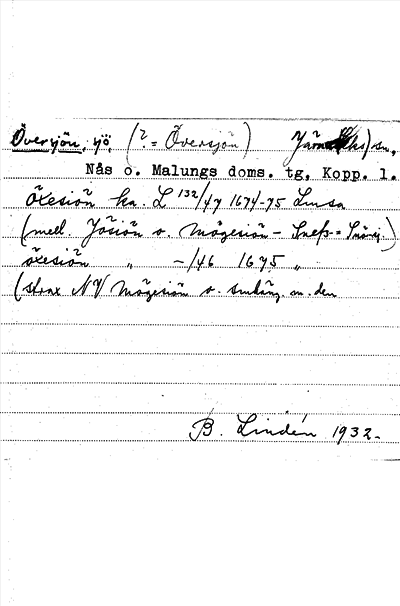 Överjön, sjö, (? = Översjön) Järna sn,
Nås o. Malungs doms. tg, Kopp. l.
Öresiön ka. L 132/47 1674-75 Lmsa
(mell. Jösiön o. Mögesiön -
öresiön " -/46 1675 "
(strax NV Mögesiön o. smhäng. m. den
B. Lindén 1932.